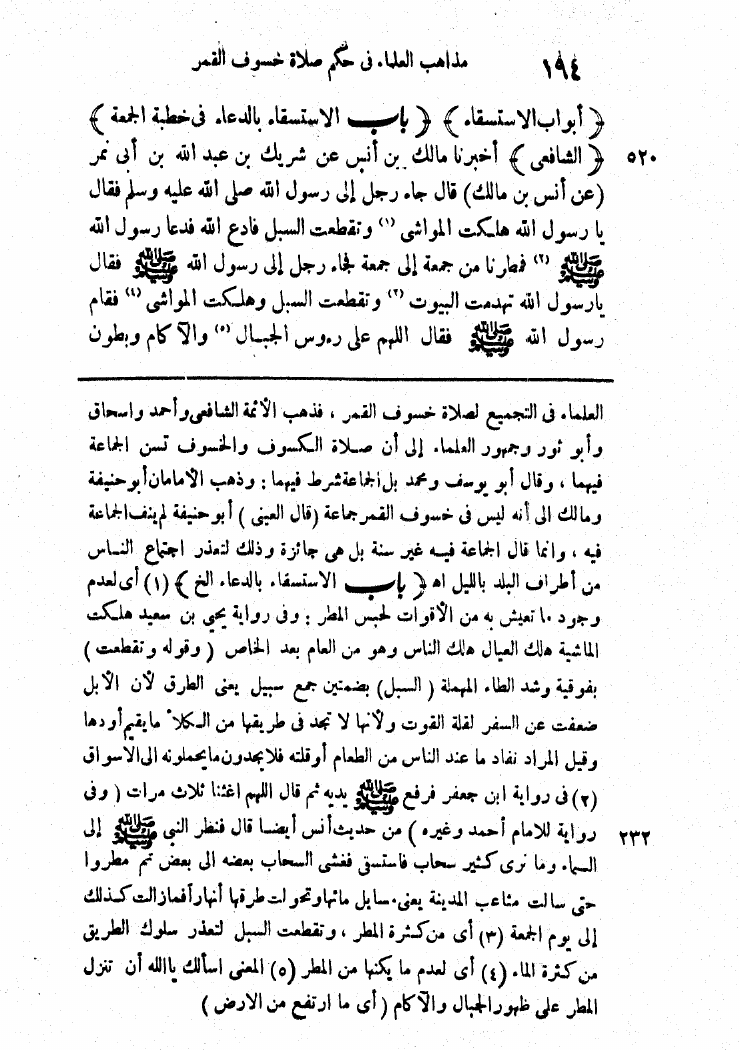 ١٩٤
مذاهب العلماء فى حكم صلاة خسوف القمر
﴿ أبواب الاستسقاء ﴾ ﴿ باب الاستسقاء بالدعاء فى خطبة الجمعة ﴾
٥٢٠ ﴿ الشافعى ﴾ أخبرنا مالك بن أنس عن شريك بن عبد الله بن أبى نمر
(عن أنس بن مالك) قال جاء رجل إلى رسول الله صلى الله عليه وسلم فقال
يا رسول الله هلكت المواشى (١) وتقطعت السبل فادع الله فدعا رسول الله
ﷺ (٢) فمطرنا من جمعة إلى جمعة فجاء رجل إلى رسول الله ﷺ فقال
يارسول الله تهدمت البيوت (٣) وتقطعت السبل وهلكت المواشى (٤) فقام
رسول الله ﷺ فقال اللهم على رءوس الجبال (٥) والآكام وبطون
العلماء فى التجميع لصلاة خسوف القمر ، فذهب الأئمة الشافعى وأحمد واسحاق
وأبو ثور وجمهور العلماء إلى أن صلاة الكسوف والخسوف تسن الجماعة
فيهما ، وقال أبو يوسف ومحمد بل الجماعة شرط فيهما : وذهب الأمامان أبو حنيفة
ومالك الى أنه ليس فى خسوف القمر جماعة (قال العينى ) أبو حنيفة لم ينف الجماعة
فيه ، وانما قال الجماعة فيه غير سنة بل هى جائزة وذلك لتعذر اجتماع الناس
من أطراف البلد بالليل اه ﴿ باب الاستسقاء بالدعاء الخ ﴾ (١) أى لعدم
وجود ما تعيش به من الأقوات لحبس المطر : وفى رواية يحيى بن سعيد هلكت
الماشية هلك العيال هلك الناس وهو من العام بعد الخاص ( وقوله وتقطعت )
بفوقية وشد الطاء المهملة ( السبل) بضمتين جمع سبيل يعنى الطرق لأن الأبل
ضعفت عن السفر لقلة القوت ولأنها لا تجد فى طريقها من الكلأ ما يقيم أودها
وقيل المراد نفاد ما عند الناس من الطعام أو قلته فلا يجدون ما يحملونه الى الاسواق
(٢) فى رواية ابن جعفر فرفع ﷺ يديه ثم قال اللهم اغثنا ثلاث مرات ( وفى
٢٣٢ رواية للامام أحمد وغيره ) من حديث أنس أيضا قال فنظر النبى ﷺ إلى
السماء وما نرى كثير سحاب فاستسقى ففشى السحاب بعضه الى بعض ثم مطروا
حتى سالت مثاعب المدينة يعنى مسايل مائها وتحولت طرقها أنهاراً فما زالت كذلك
إلى يوم الجمعة (٣) أى من كثرة المطر ، وتقطعت السبل لتعذر سلوك الطريق
من كثرة الماء (٤) أى لعدم ما يكنها من المطر (٥) المعنى اسألك ياالله أن تنزل
المطر على ظهور الجبال والآكام ( أى ما ارتفع من الارض )